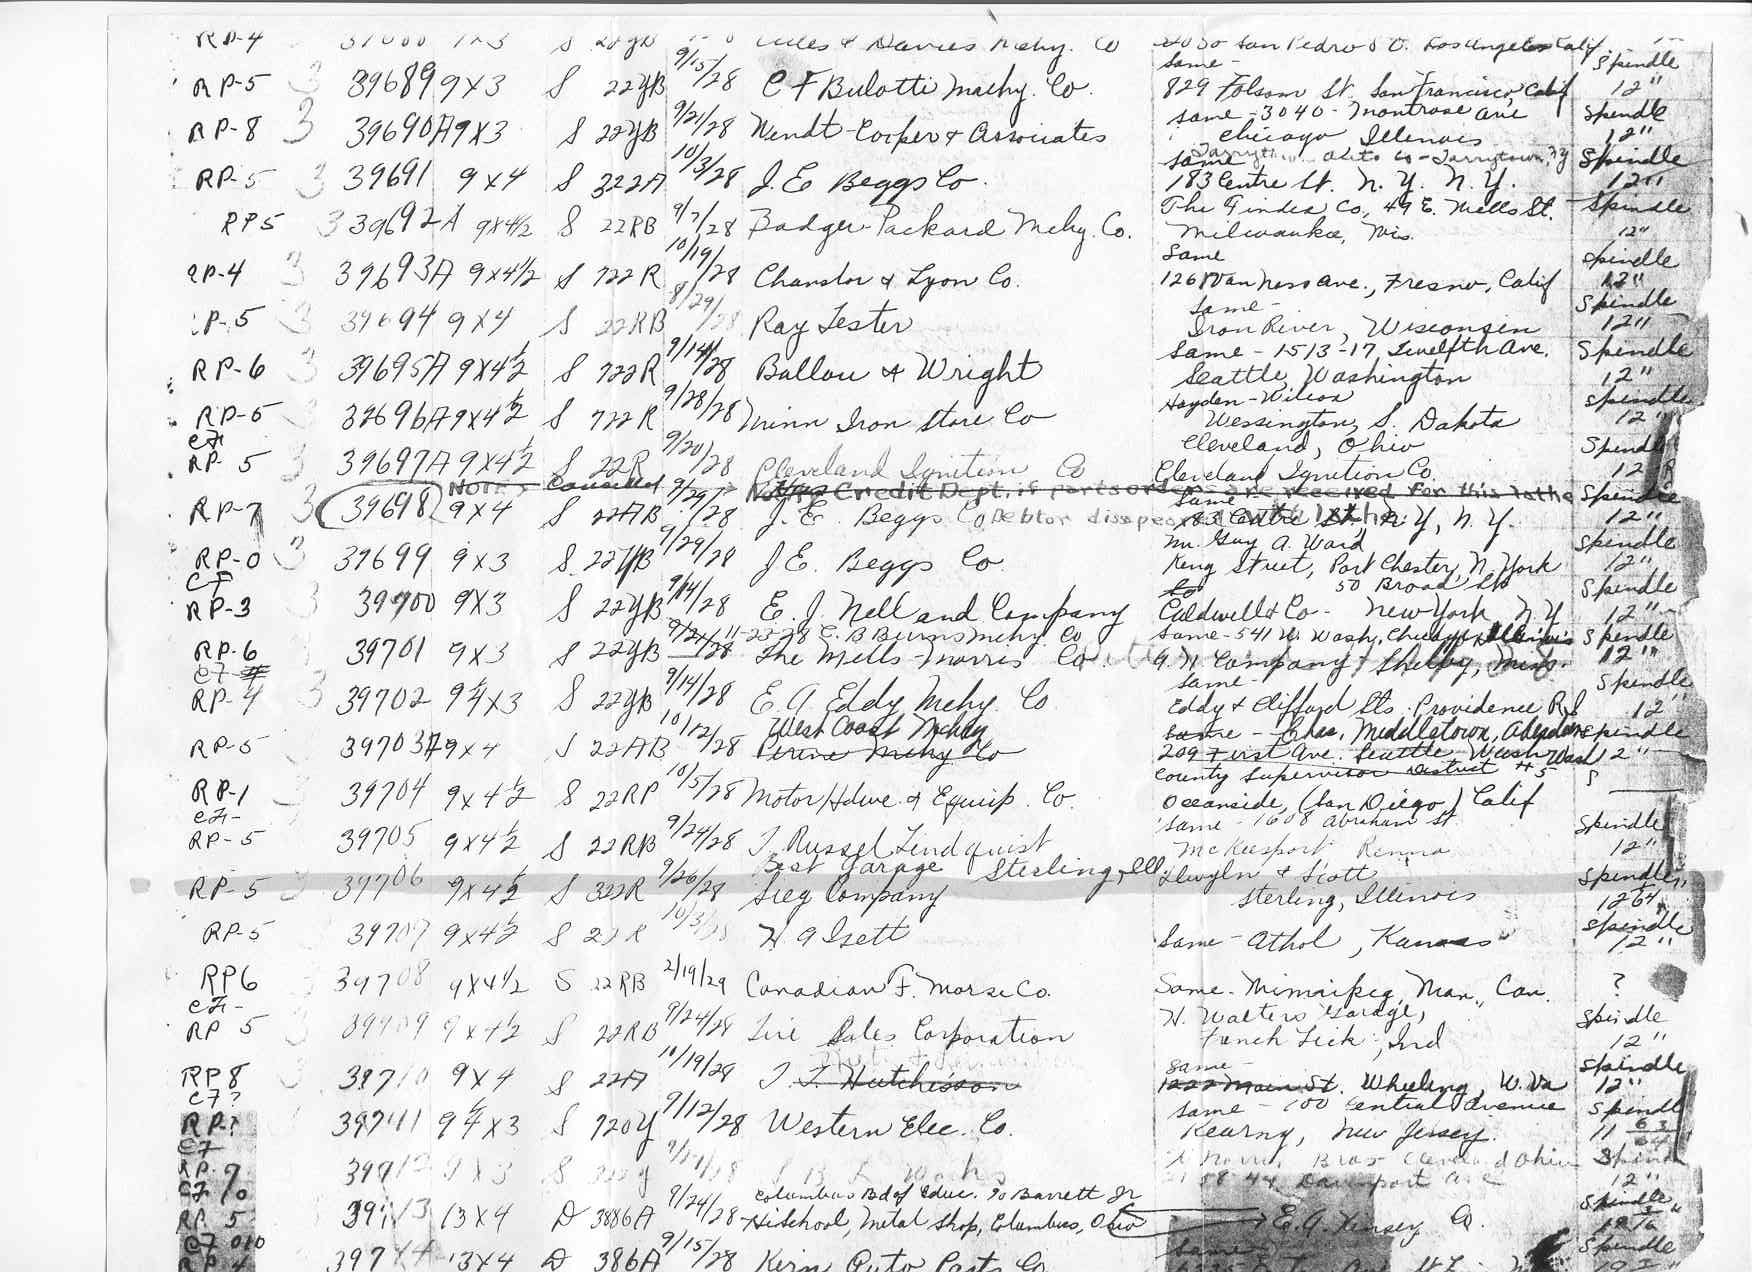 RP-4 9x3 S 22YB & Davies Mchy. Co San Pedro Los Angeles Calif
same - Spindle
RP-5 3 39689 9x3 S 22YB 9/15/28 C F Bulotti Machy. Co. 829 Folsom St. San Francisco, Calif 12"
same - 3040 - Montrose Ave Spindle
RP-8 3 39690A 9x3 S 22YB 9/21/28 Wendt-Cooper & Associates Chicago Illinois 12"
same Auto Co - Tarrytown, NY Spindle
RP-5 3 39691 9x4 S 322A 10/3/28 J. E Beggs Co. 183 Centre St. N. Y. N. Y. 12"
The Co, 49 E. Wells St. Spindle
RP5 3 39692A 9x4½ S 22RB 9/7/28 Badger-Packard Mchy. Co. Milwaukee, Wis. 12"
Same Spindle
RP-4 3 39693A 9x4½ S 722R 10/19/28 Chanslor & Lyon Co. Van Ness Ave., Fresno, Calif 12"
Same - Spindle
RP-5 3 39694 9x4 S 22RB 8/29/28 Ray Lester Iron River, Wisconsin 12"
Same - 1513-17 Twelfth Ave. Spindle
RP-6 3 39695A 9x4½ S 722R 9/14/28 Ballou & Wright Seattle, Washington 12"
Hayden-Wilcox Spindle
RP-5 3 39696A 9x4½ S 722R 9/28/28 Minn Iron Store Co Wessington, S. Dakota 12"
C7 Cleveland, Ohio Spindle
RP- 5 3 39697A 9x4½ S 22R 9/20/28 Cleveland Ignition Co Cleveland Ignition Co. 12
NOTE Cancelled Notify Credit Dept. if parts orders are received for this lathe
Same Spindle
RP-7 3 39698 9x4 S 22AB 9/29/28 J. E. Beggs Co Debtor disappeared with lathe 183 Centre St. N.Y, N.Y. 12"
Mr. Guy A. Ward Spindle
RP-0 3 39699 9x3 S 22YB 9/29/28 J. E. Beggs Co King Street, Port Chester, N. York 12"
C7 50 Broad St Spindle
RP-3 3 39700 9x3 S 22YB 9/14/28 E. J. Nell and Company Caldwell & Co - New York N Y 12"
11-23-28 E. B Burns Mchy Co same - 541 W. Wash, Chicago, Illinois Spindle
RP-6 39701 9x3 S 22YB 9/21/28 The Mills-Morris Co. Company Shelby, Miss. 12"
C7 same - Spindle
RP-4 3 39702 9¼x3 S 22YB 9/14/28 E. A. Eddy Mchy. Co Eddy & Clifford Sts. Providence R.I 12"
West Coast Mchy same - Middletown, Aberdeen Spindle
RP-5 39703A 9x4 S 22AB 10/12/28 Perine Mchy Co 209 First Ave. Seattle Wash Wash 12"
County Supervisor District #5 S
RP-1 39704 9x4½ S 22RP 10/5/28 Motor Hdwe. & Equip. Co. Oceanside, (San Diego) Calif
C7- same - 1608 Abraham St Spindle
RP-5 39705 9x4½ S 22RB 9/24/28 J. Russel Lindquist McKeesport Penna 12"
Best Garage Sterling, Ill. Llewyln & Scott Spindle
RP-5 3 39706 9x4½ S 322R 9/26/28 Sieg Company Sterling, Illinois
Spindle
RP-5 39707 9x4½ S 22R 10/3/28 H. A Isett Same - Athol, Kansas 12"
RP6 39708 9x4½ S 22RB 2/19/29 Canadian F. Morse Co. Same - Man., Can. ?
C7- H. Walters Garage, Spindle
RP 5 3 39709 9x4½ S 22RB 9/24/28 Tire Sales Corporation French Lick, Ind 12"
same Spindle
RP8 3 39710 9x4 S 22A 10/19/28 J. T. Hutchisson 1222 Main St. Wheeling, W. Va 12"
C7? same - 100 Central Avenue Spindle
RP-? 39711 9¼x3 S 720Y 9/12/28 Western Elec. Co. Kearny, New Jersey. 11 63/64
C7 Bros Cleveland Ohio Spindle
RP-7 39712 9x3 S Davenport Ave 12"
C7 10 Columbus Bd of Educ. % Barrett Jr Spindle
RP 5 39713 13x4 D 3886A 9/24/28 HiSchool, Metal Shop, Columbus, Ohio E. A. Kinsey Co.
C7 010 same Spindle
RP 4 39714 13x4 D 386A 9/15/28 Kern Auto Parts Co